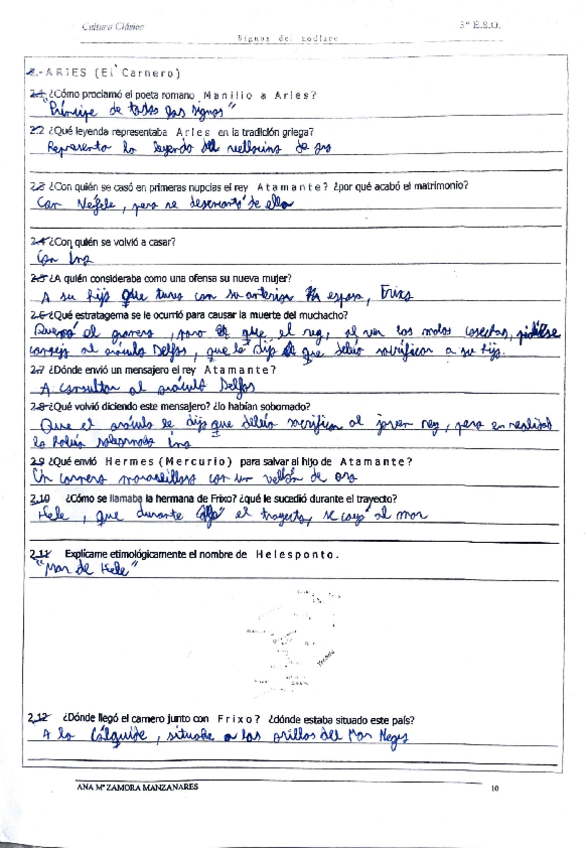 Cultura Clásica 3º E.S.O.
Signos del zodiaco
2.-ARIES (El Carnero)
2.1 ¿Cómo proclamó el poeta romano Manilio a Aries?
"Príncipe de todos los signos"
2.2 ¿Qué leyenda representaba Aries en la tradición griega?
Representa la leyenda del vellocino de oro
2.3 ¿Con quién se casó en primeras nupcias el rey Atamante? ¿por qué acabó el matrimonio?
Con Néfele, pero se desencantó de ella
2.4 ¿Con quién se volvió a casar?
Con Ino
2.5 ¿A quién consideraba como una ofensa su nueva mujer?
A su hijo que tuvo con su anterior esposa, Frixo
2.6 ¿Qué estratagema se le ocurrió para causar la muerte del muchacho?
Quemó el granero, para que el rey, al ver las malas cosechas, pidiese
consejo al oráculo Delfos, que le dijo que debía sacrificar a su hijo.
2.7 ¿Dónde envió un mensajero el rey Atamante?
A consultar al oráculo Delfos
2.8 ¿Qué volvió diciendo este mensajero? ¿lo habían sobornado?
Que el oráculo le dijo que debía sacrificar al joven rey, pero en realidad
lo había sobornado Ino
2.9 ¿Qué envió Hermes (Mercurio) para salvar al hijo de Atamante?
Un carnero maravilloso con un vellón de oro
2.10 ¿Cómo se llamaba la hermana de Frixo? ¿qué le sucedió durante el trayecto?
Hele, que durante el trayecto, se cayó al mar
2.11 Explícame etimológicamente el nombre de Helesponto.
"Mar de Hele"
2.12 ¿Dónde llegó el carnero junto con Frixo? ¿dónde estaba situado este país?
A la Cólquide, situada a las orillas del Mar Negro
ANA Mª ZAMORA MANZANARES 10